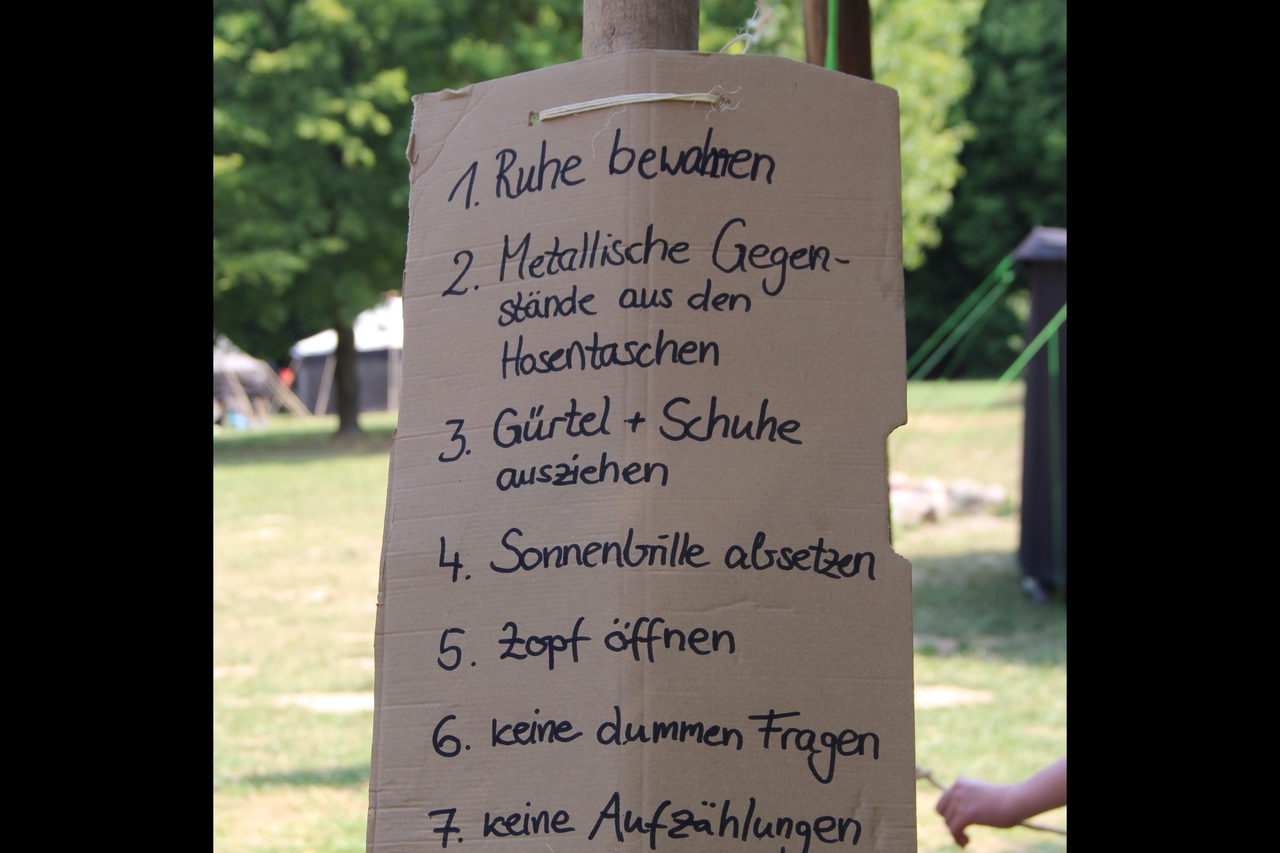 1. Ruhe bewahren
2. Metallische Gegen-
stände aus den
Hosentaschen
3. Gürtel + Schuhe
ausziehen
4. Sonnenbrille absetzen
5. Zopf öffnen
6. keine dummen Fragen
7. keine Aufzählungen